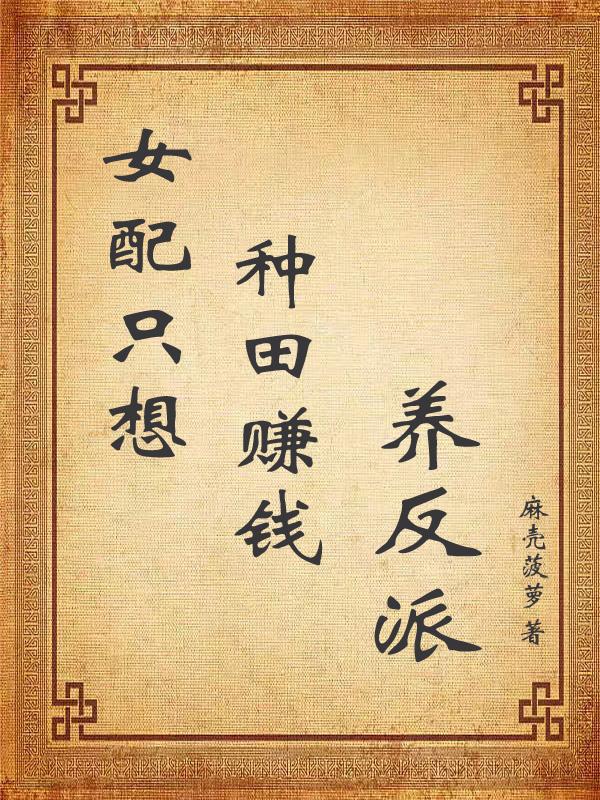 女配只想
种田赚钱
养反派
麻壳菠萝 著